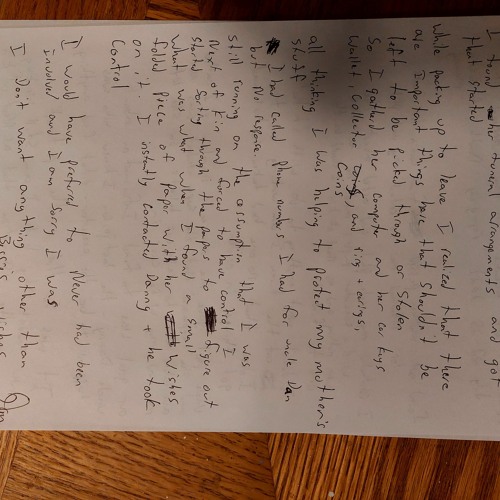 I found her funeral arrangements and got
that started
while packing up to leave I realized that there
are Important things here that shouldn't be
left to be picked through or stolen
So I gathered her computer and her car keys
wallet, collector coins, and ring + earings,
all thinking I was helping to protect my mother's
stuff
I had called phone numbers I had for uncle Dan
but no response.
still running on the assumption that I was
Next of kin and forced to have control, I
started sorting through the papers to figure out
what was what when I found a small
folded piece of Paper with her wishes
on it. I instantly contacted Danny + he took
control
I would have preferred to Never had been
involved and I am sorry I was
I Don't want anything other than
wishes